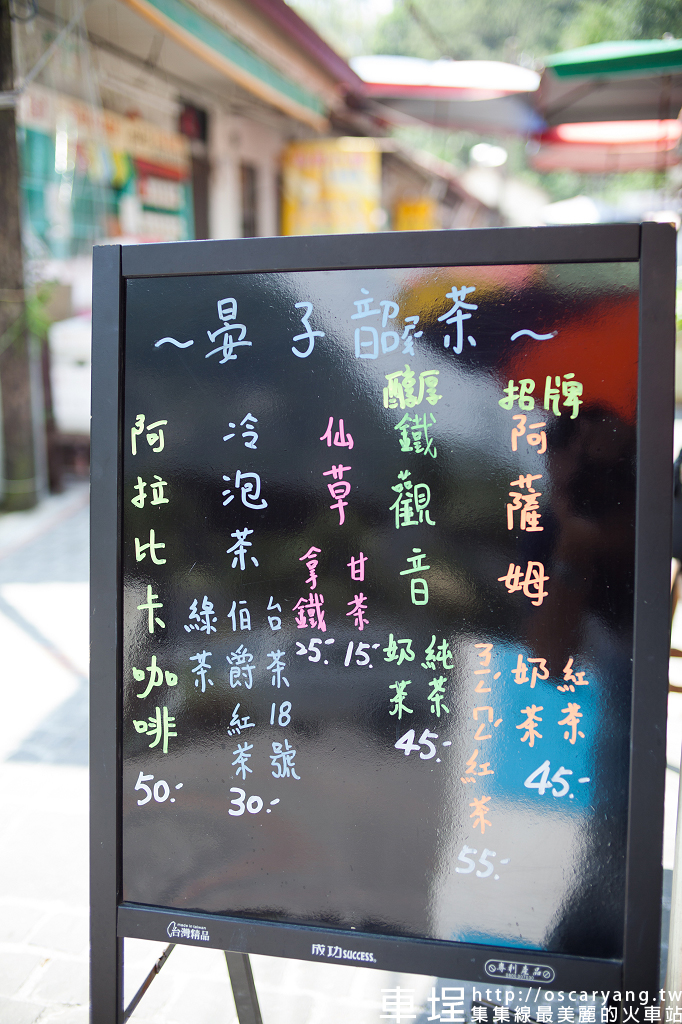 ～晏子茶～
招牌
阿薩姆
紅茶
奶茶
45.-
紅茶
55.-
醇厚
鐵觀音
純茶
奶茶
45.-
仙草
甘茶
15.-
拿鐵
25.-
冷泡茶
台茶18號
伯爵紅茶
綠茶
30.-
阿拉比卡咖啡
50.-
made in taiwan
台灣精品
成功SUCCESS®
專利產品
車埕 http://oscaryang.tw
集集線最美麗的火車站